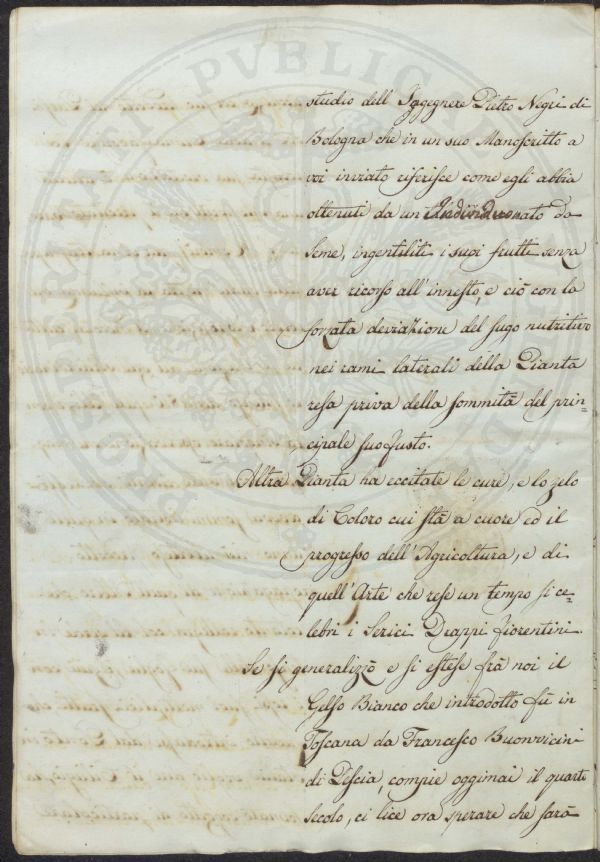 studio dell'Ingegnere Pietro Negri di
Bologna che in un suo Manoscritto a
voi inviato riferisce come egli abbia
ottenuti da un nato da
Seme, ingentiliti i suoi frutti senza
aver ricorso all'innesto, e ciò con la
forzata deviazione del sugo nutritivo
nei rami laterali della Pianta
resa priva della sommità del prin=
cipale suo fusto.
Altra Pianta ha eccitate le cure, e lo zelo
di Coloro cui stà a cuore ed il
progresso dell'Agricoltura, e di
quell'Arte che rese un tempo sì ce=
lebri i Serici Drappi fiorentini.
Se si generalizzò e si estese frà noi il
Gelso Bianco che introdotto fù in
Toscana da Francesco Buonvicini
di Pescia, compie oggimai il quarto
Secolo, ci lice ora sperare che sarà